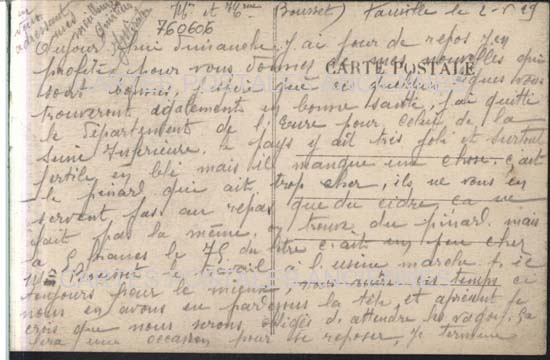 en vous adressant mes meilleures amitiés
Mr et Mme Bousset) Fauville le 2-5 29
760606
CARTE POSTALE
Aujourd'hui dimanche j'ai jour de repos j'en
profite pour vous donner de mes nouvelles qui
sont bonnes, j'espère que ces quelques lignes vous
trouveront également en bonne santé, j'ai quitté
le département de l'Eure pour celui de la
Seine Inférieure. le pays y ait très joli et surtout
fertile en blé mais il manque une chose. c'ait
le pinard qui ait trop cher, ils ne vous en
servent pas au repas que du cidre, ça ne
fait pas la même. on trouve du pinard mais
à 5 francs le 75 du litre c'ait un peu cher
Mr Bousset le travail à l'usine marche t-il
toujours pour le mieux nous voici les temps ci
nous en avons eu par dessus la tête et apresent je
crois que nous serons obligés d'attendre les vagons. Ça
sera une occasion pour se reposer, Je termine